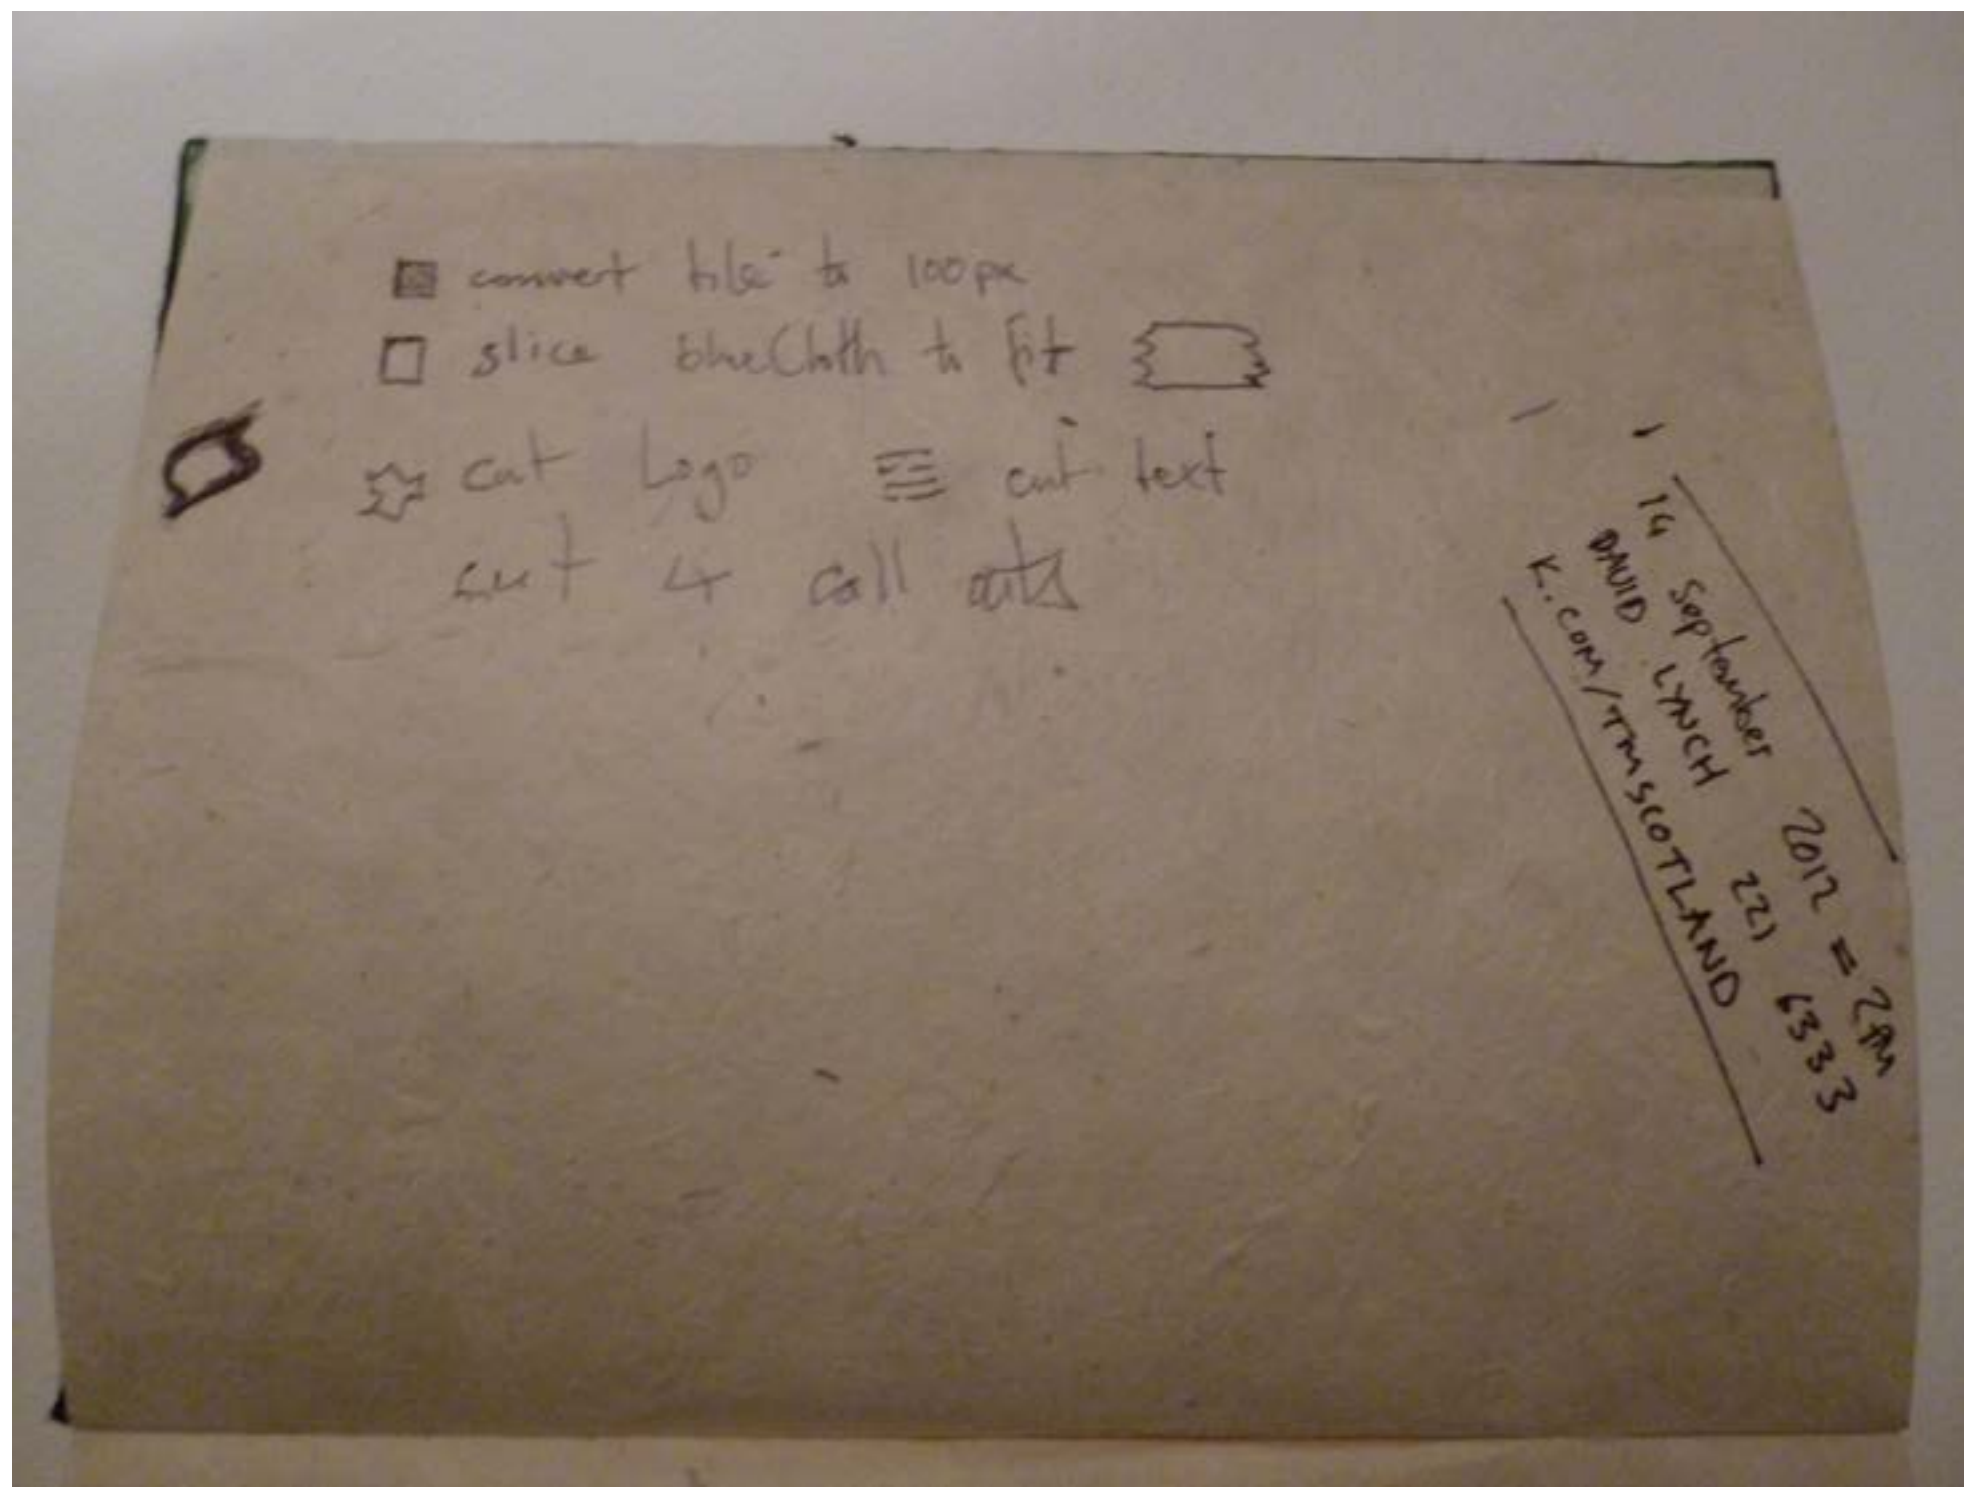 convert tile to 100px
slice blueCloth to fit
cut Logo cut text
cut 4 call outs
14 September 2012 = 2PM
DAVID LYNCH 221 6333
K.COM/TMSCOTLAND